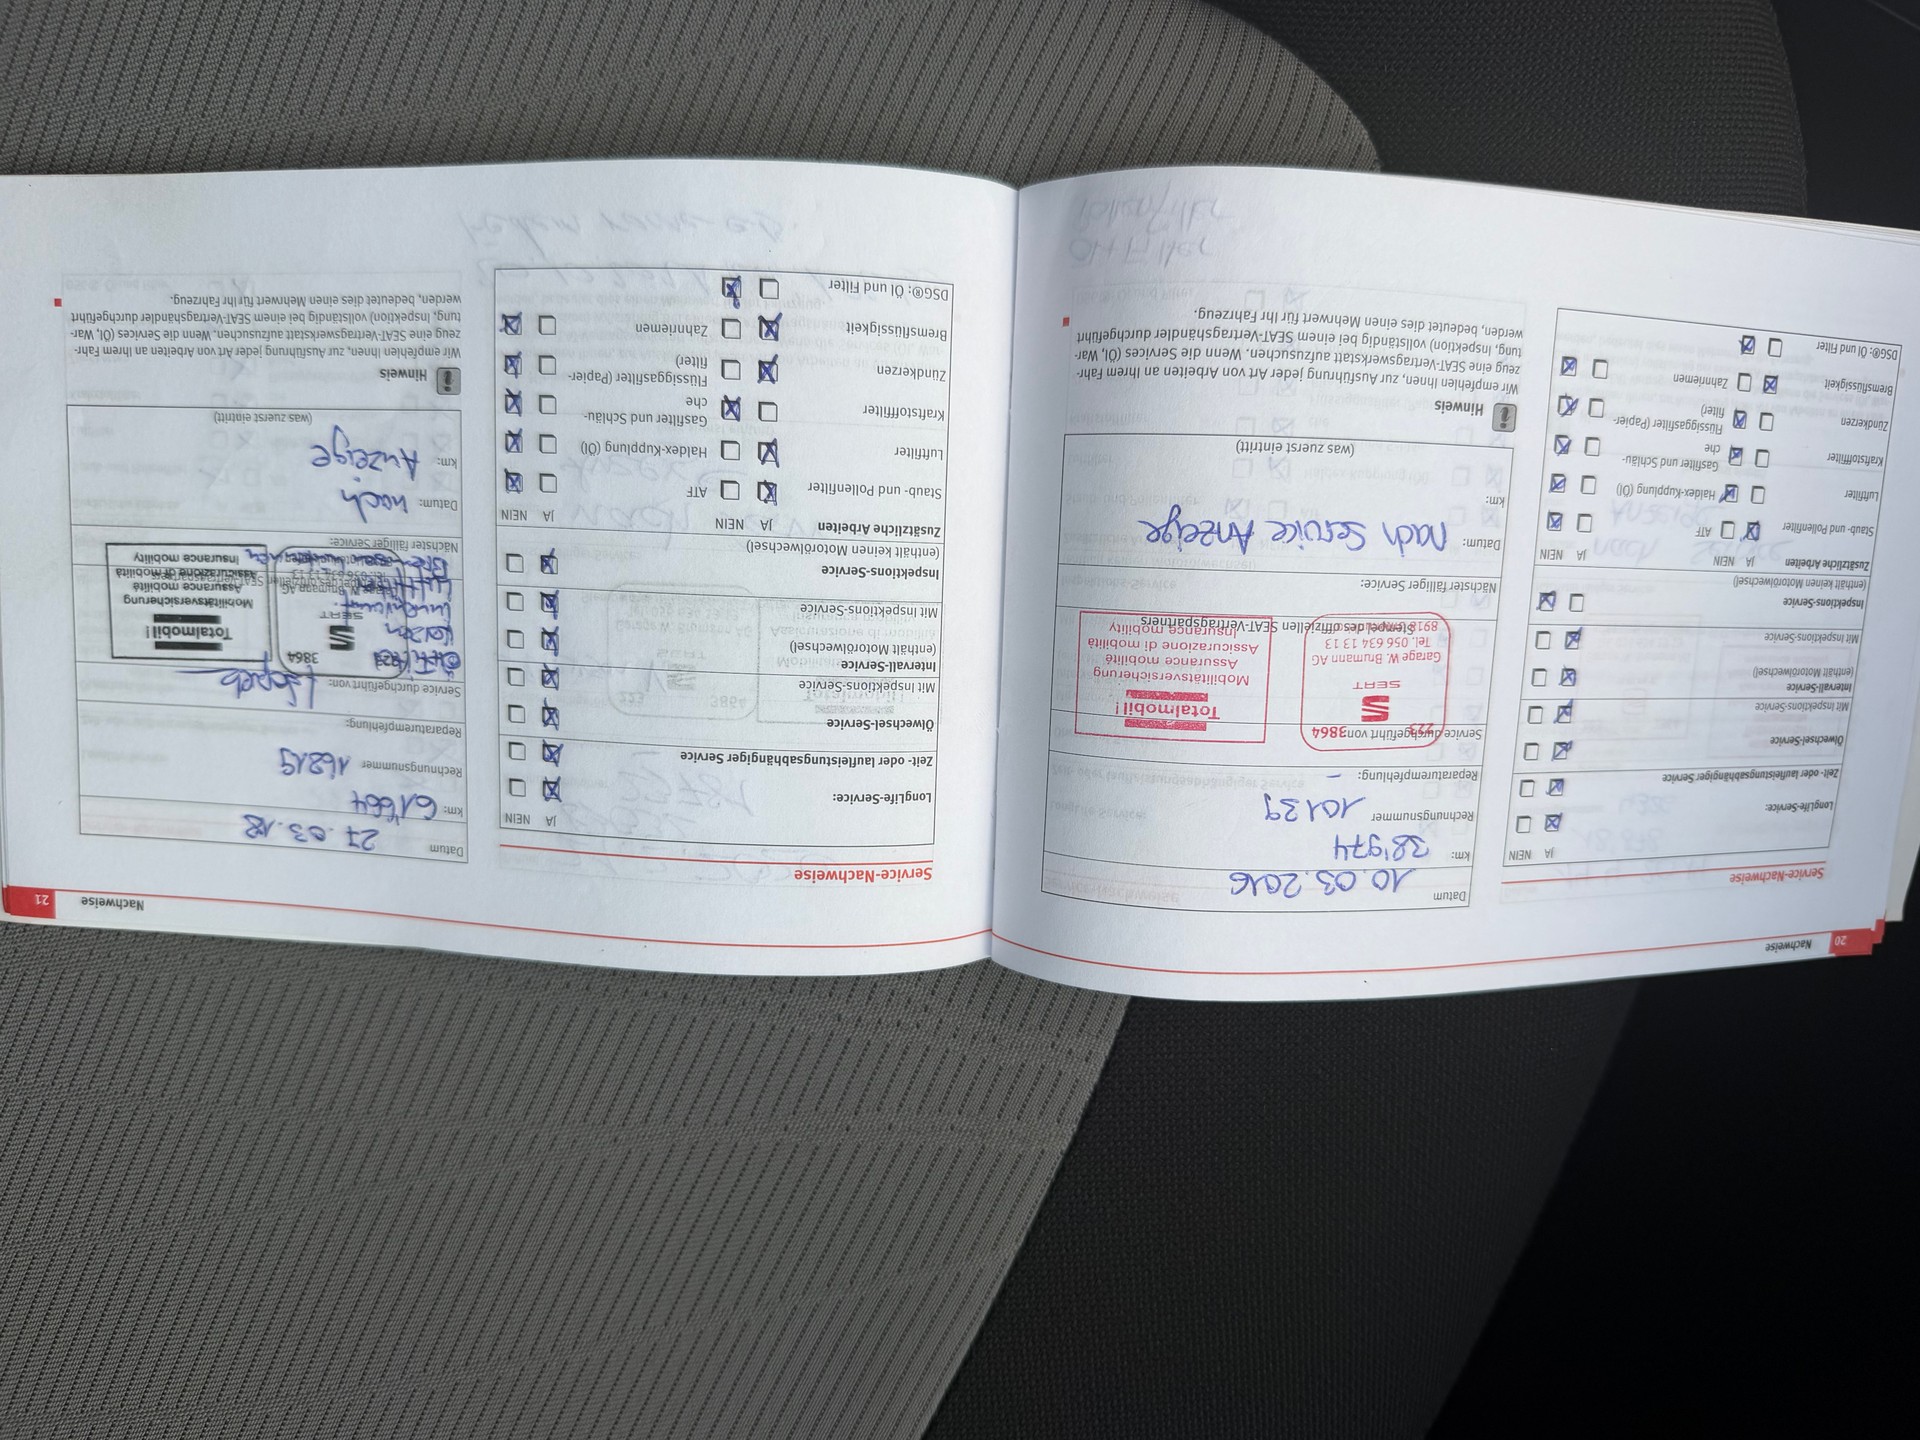 20 Nachweise
Service-Nachweise
JA NEIN
LongLife-Service:
Zeit- oder laufleistungsabhängiger Service
Ölwechsel-Service
Mit Inspektions-Service
Intervall-Service
(enthält Motorölwechsel)
Mit Inspektions-Service
Inspektions-Service
(enthält keinen Motorölwechsel)
Zusätzliche Arbeiten JA NEIN JA NEIN
Staub- und Pollenfilter ATF
Luftfilter Haldex-Kupplung (Öl)
Kraftstofffilter Gasfilter und Schläu-
che
Zündkerzen Flüssiggasfilter (Papier-
filter)
Bremsflüssigkeit Zahnriemen
DSG®: Öl und Filter
Datum 10.03.2016
km: 38'974
Rechnungsnummer 10139
Reparaturempfehlung: –
Service durchgeführt von:
223 3864
SEAT
Garage W. Brumann AG
Tel. 056 634 13 13
8918
Totalmobil!
Mobilitätsversicherung
Assurance mobilité
Assicurazione di mobilità
Insurance mobility
Stempel des offiziellen SEAT-Vertragspartners
Nächster fälliger Service:
Datum: nach Service Anzeige
km:
(was zuerst eintritt)
Hinweis
Wir empfehlen Ihnen, zur Ausführung jeder Art von Arbeiten an Ihrem Fahr-
zeug eine SEAT-Vertragswerkstatt aufzusuchen. Wenn die Services (Öl, War-
tung, Inspektion) vollständig bei einem SEAT-Vertragshändler durchgeführt
werden, bedeutet dies einen Mehrwert für Ihr Fahrzeug.
Nachweise 21
Service-Nachweise
JA NEIN
LongLife-Service:
Zeit- oder laufleistungsabhängiger Service
Ölwechsel-Service
Mit Inspektions-Service
Intervall-Service
(enthält Motorölwechsel)
Mit Inspektions-Service
Inspektions-Service
(enthält keinen Motorölwechsel)
Zusätzliche Arbeiten JA NEIN JA NEIN
Staub- und Pollenfilter ATF
Luftfilter Haldex-Kupplung (Öl)
Kraftstofffilter Gasfilter und Schläu-
che
Zündkerzen Flüssiggasfilter (Papier-
filter)
Bremsflüssigkeit Zahnriemen
DSG®: Öl und Filter
Datum 27.03.18
km: 61'664
Rechnungsnummer 16219
Reparaturempfehlung:
Service durchgeführt von:
3864
SEAT
Garage W. Brumann AG
Totalmobil!
Mobilitätsversicherung
Assurance mobilité
Assicurazione di mobilità
Insurance mobility
Nächster fälliger Service:
Datum: nach
km: Anzeige
(was zuerst eintritt)
Hinweis
Wir empfehlen Ihnen, zur Ausführung jeder Art von Arbeiten an Ihrem Fahr-
zeug eine SEAT-Vertragswerkstatt aufzusuchen. Wenn die Services (Öl, War-
tung, Inspektion) vollständig bei einem SEAT-Vertragshändler durchgeführt
werden, bedeutet dies einen Mehrwert für Ihr Fahrzeug.